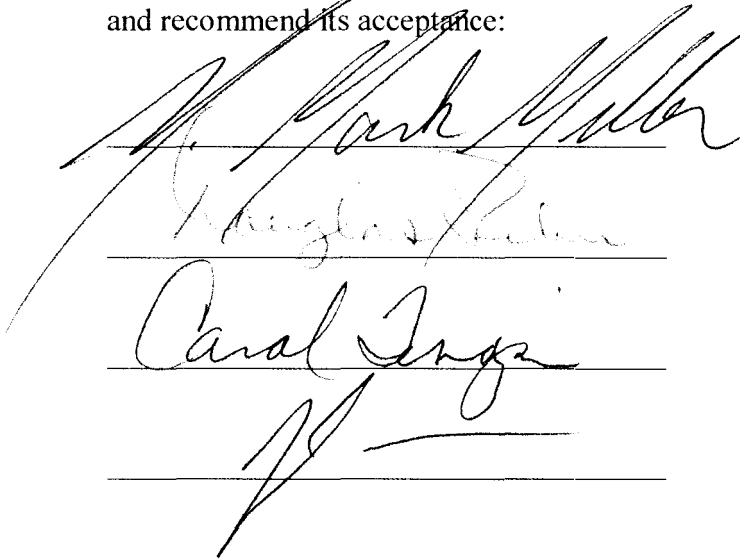 and recommend its acceptance:
M. Mark Miller
Douglas
Carol